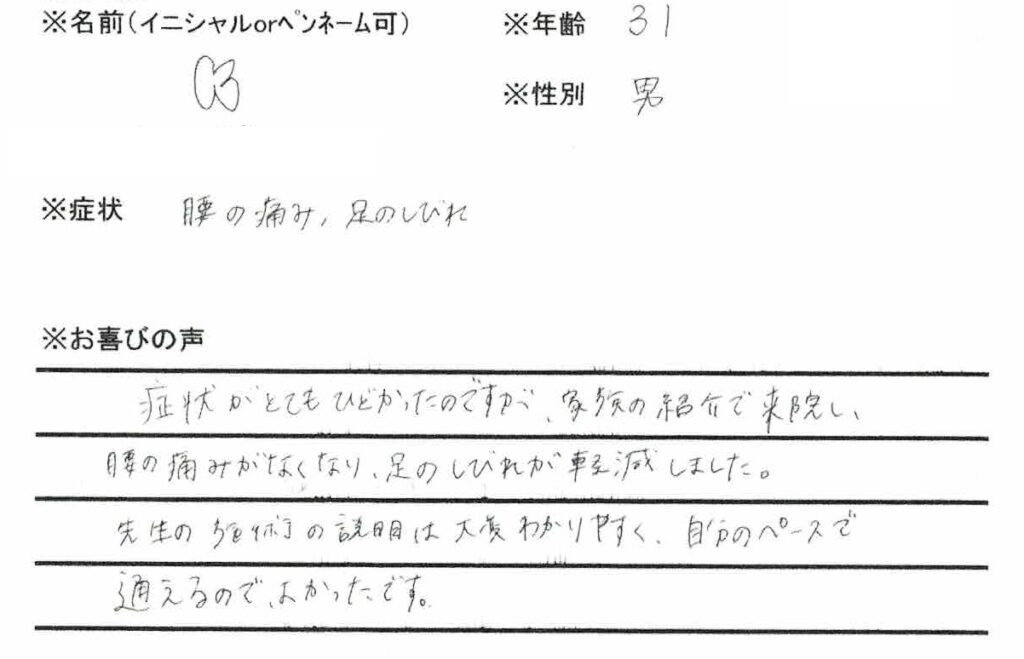 ※名前(イニシャルorペンネーム可)
※年齢 31
※性別 男
※症状 腰の痛み, 足のしびれ
※お喜びの声
症状がとてもひどかったのですが、家族の紹介で来院し、
腰の痛みがなくなり、足のしびれが軽減しました。
先生の施術の説明は大変わかりやすく、自分のペースで
通えるので、よかったです。